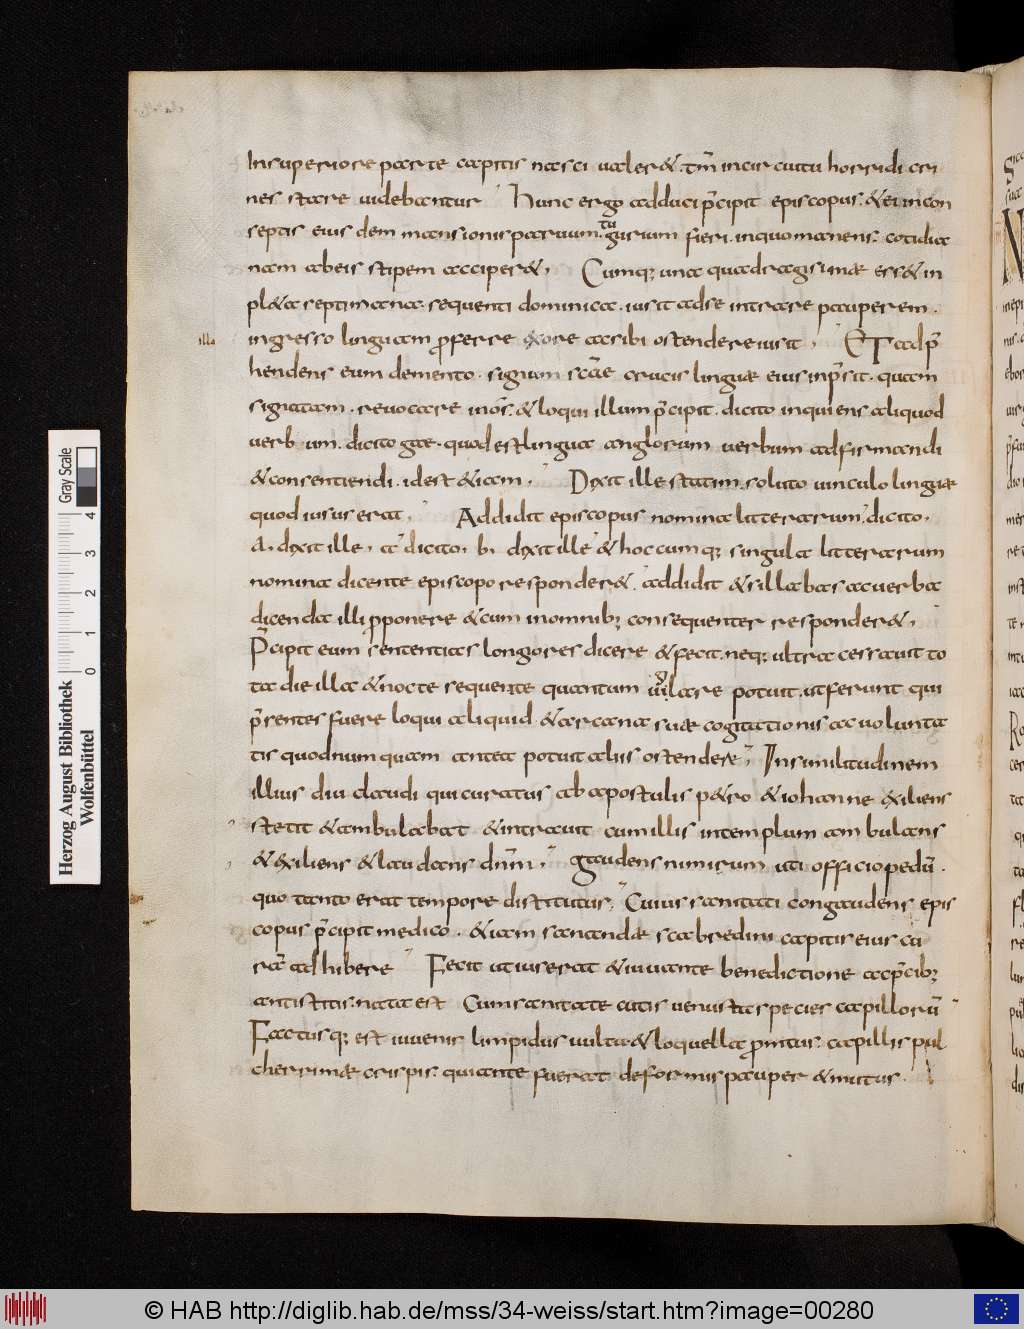 Insuperiore parte capitis nasci ualer&. tm̄ incircuitu horridi cri
nes stare uidebantur Hunc ergo adduci p̄cipit episcopus. &ei incon
septis eius dem mansionis paruum. tu
gurium fieri. inquo manens. cotidia
nam abeis stipem acciper&. Cumq; una quadragisimæ ess& in
pl&a septimana. sequenti dominica. iusit adse intrare pauperem.
illo
ingresso linguam ꝓferre exore acsibi ostendere iusit. ET adp̄
hendens eum demento. signum scǣ crucis linguæ eius inp̄sit. quam
signatam. reuocare inos̄. &loqui illum p̄cipit. dicito inquiens aliquod
uerbum. dicito gae. quod est lingua anglorum uerbum adfirmandi
&consentiendi. id est &iam. Dixit ille statim soluto uinculo linguæ
quod iusus erat. Addidit episcopus nomina litterarum. dicito.
A. dixit ille. a dicito. b. dixit ille &hoc cumq; singula litterarum
nomina dicente episcopo responder&. addidit &sillabas ac uerba
dicenda illi ꝓponere &cum inomnib; consequenter responder&.
P̄cipit eum sententias longiores dicere &fecit. neq; ultra cessauit to
ta die illa &nocte sequente quantum uigilare potuit. ut ferunt qui
p̄sentes fuere loqui aliquid. &arcana suæ cogitationis ac uolunta
tis quod numquam antea potuit aliis ostender&. In similitudinem
illius diu claudi qui curatus ab apostulis p&ro &iohanne exiliens
stetit &ambulabat &intrauit cum illis in templum ambulans
&exiliens &laudans dnm̄. gaudens nimirum uti officio pedū.
quo tanto erat tempore distitutus. Cuius sanitati congaudens epis
copus p̄cipit medico. &iam sanandæ scabredini capitis eius cu
rā adhibere Fecit ut iuserat &iuuante benedictione ac p̄cib;
antistitis. nata est Cum sanitate cutis uenusta species capillorū
Factusq; est iuuenis limpidus uultu &loquella ꝓmtus. capillis pul
cherrimæ crispis. qui ante fuerat deformis pauper &mutus.
Herzog August Bibliothek
Wolfenbüttel
Gray Scale
0 1 2 3 4
© HAB http://diglib.hab.de/mss/34-weiss/start.htm?image=00280